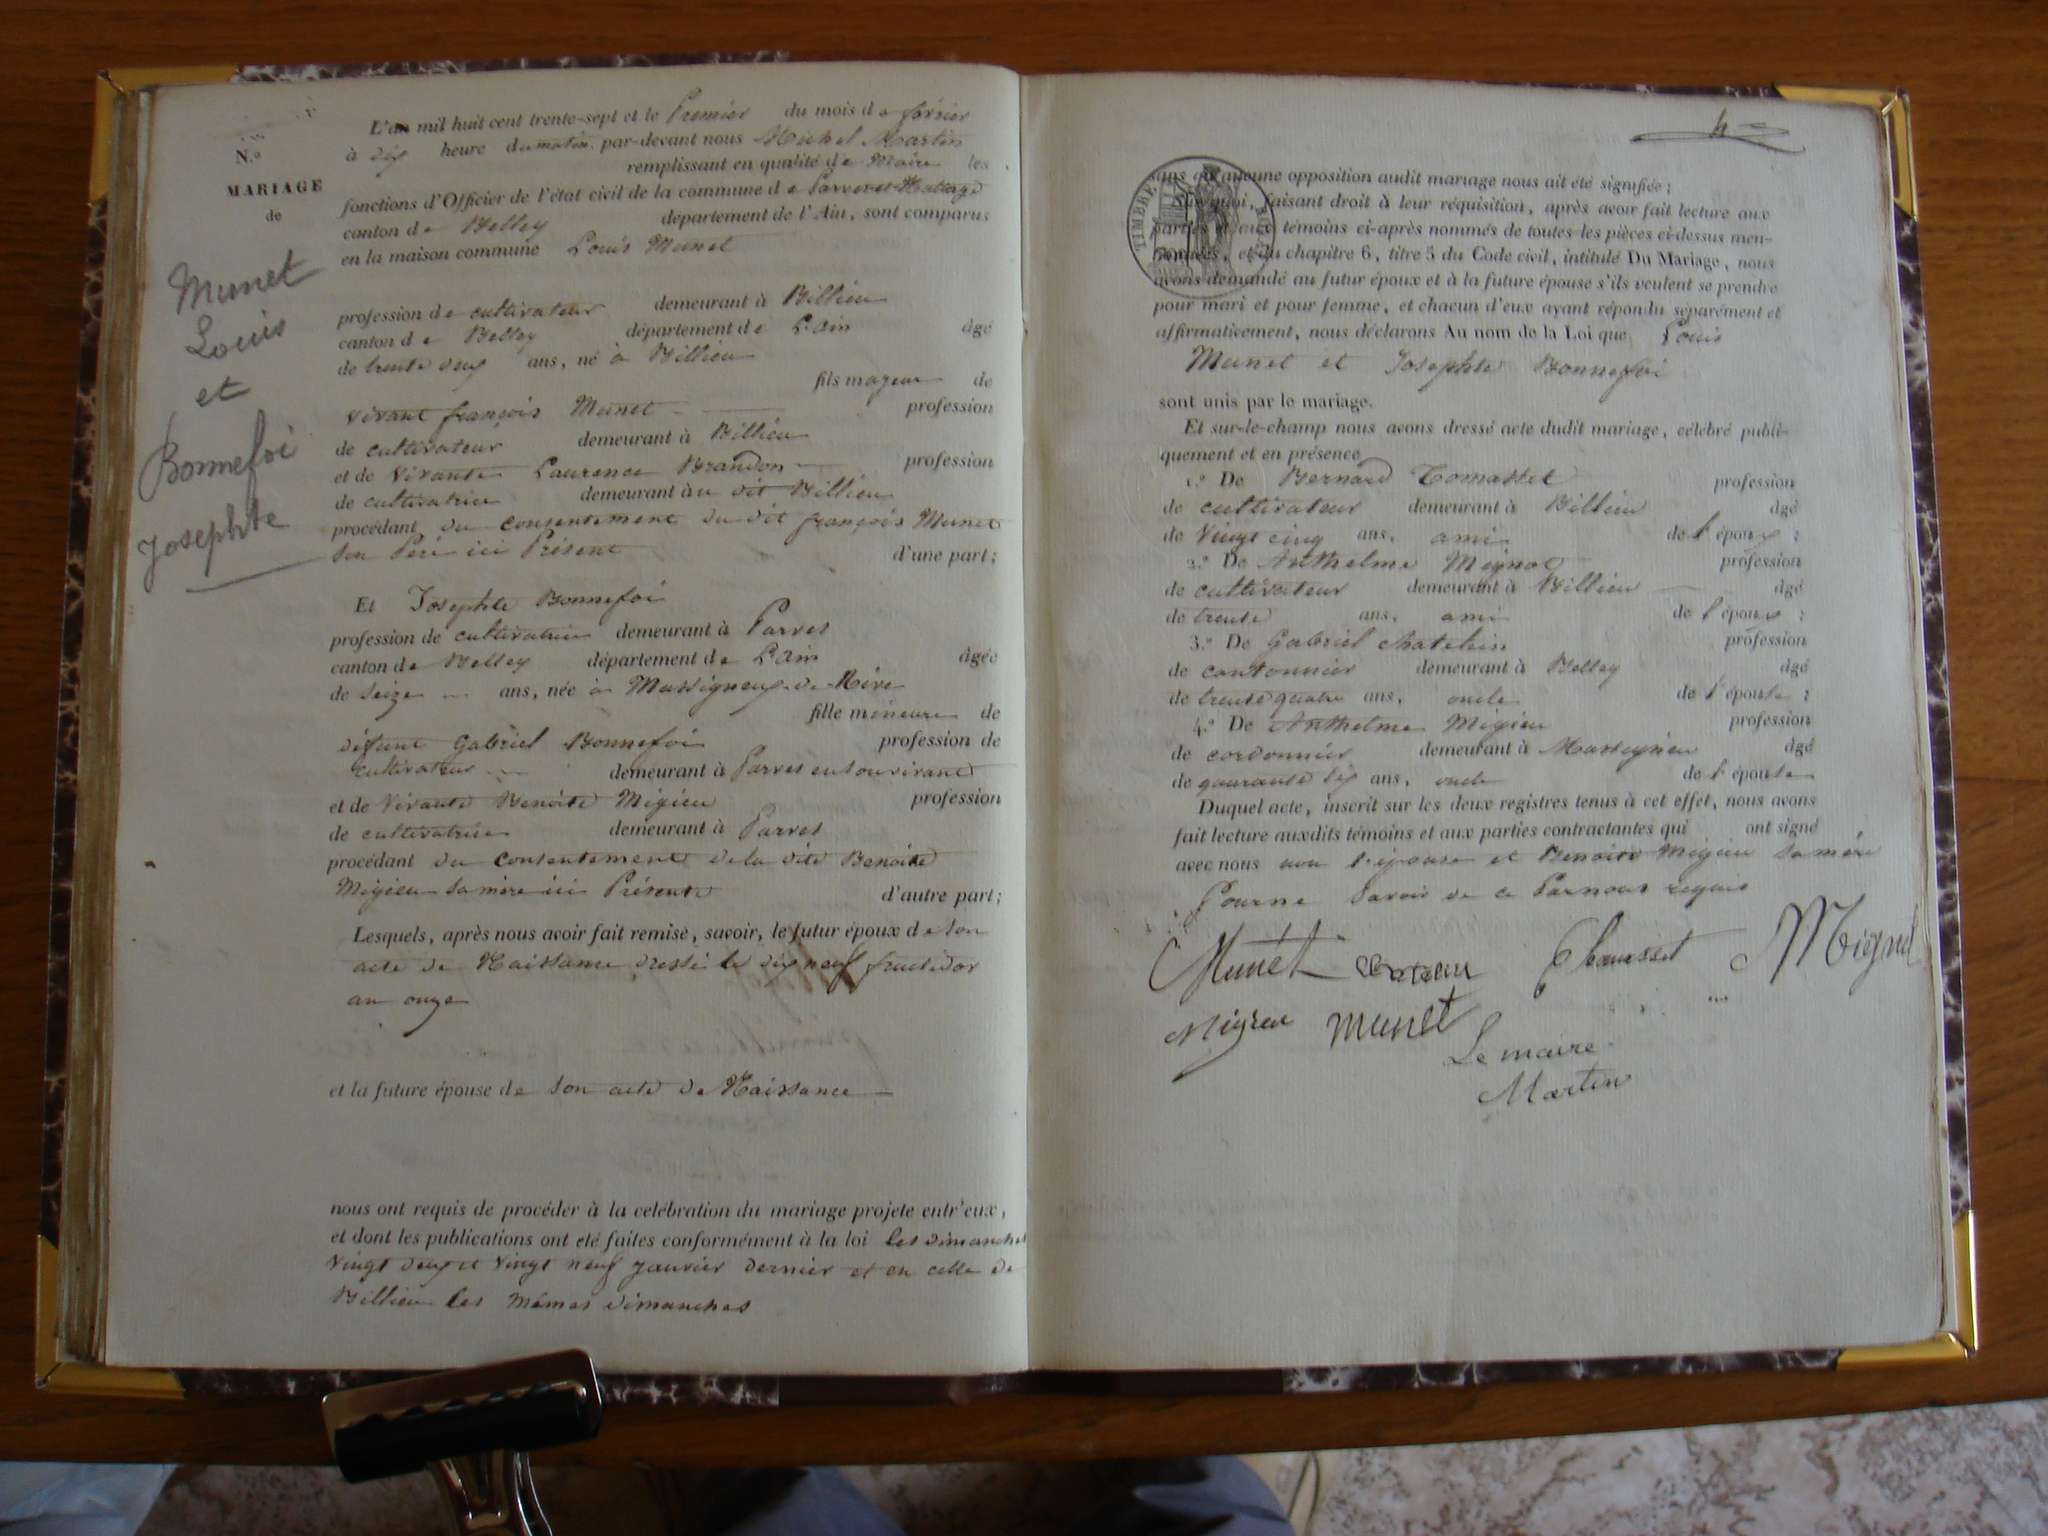 N.o
MARIAGE
de
Munet
Louis
et
Bonnefoi
Josephte
L'an mil huit cent trente-sept et le Premier du mois de février
à dix heure du matin par-devant nous Michel Martin
remplissant en qualité de Maire les
fonctions d'Officier de l'état civil de la commune de Parves et
canton de Belley département de l'Ain, sont comparus
en la maison commune Louis Munet
profession de cultivateur demeurant à Billieu
canton de Belley département de L'ain âgé
de trente deux ans, né à Billieu
fils majeur de
vivant françois Munet profession
de cultivateur demeurant à Billieu
et de vivante Laurence Brandon profession
de cultivatrice demeurant au dit Billieu
procédant du consentement du dit françois Munet
son Peré ici Présent d'une part;
Et Josephte Bonnefoi
profession de cultivatrice demeurant à Parves
canton de Belley département de L'ain âgée
de seize ans, née à Massigneux de Rive
fille mineure de
défunt Gabriel Bonnefoi profession de
cultivateur demeurant à Parves en son vivant
et de vivante Benoite Migieu profession
de cultivatrice demeurant à Parves
procédant du consentement de la dite Benoite
Migieu sa mère ici Présente d'autre part;
Lesquels, après nous avoir fait remise, savoir, le futur époux de son
acte de Naissance dressé le dix neuf fructidor
an onze
et la future épouse de son acte de Naissance
nous ont requis de procéder à la celébration du mariage projete entr'eux,
et dont les publications ont été faites conformément à la loi les dimanches
vingt deux et vingt neuf janvier dernier et en celle de
Billieu les mêmes dimanches
4
TIMBRE ROYAL
sans qu'aucune opposition audit mariage nous ait été signifiée;
Sur quoi, faisant droit à leur réquisition, après avoir fait lecture aux
parties et aux témoins ci-après nommés de toutes les pièces ci-dessus men-
tionnées, et du chapitre 6, titre 5 du Code civil, intitulé Du Mariage, nous
avons demandé au futur époux et à la future épouse s'ils veulent se prendre
pour mari et pour femme, et chacun d'eux ayant répondu séparément et
affirmativement, nous déclarons Au nom de la Loi que Louis
Munet et Josephte Bonnefoi
sont unis par le mariage.
Et sur-le-champ nous avons dressé acte dudit mariage, célébré publi-
quement et en présence
1.o De Bernard Tomasset profession
de cultivateur demeurant à Billieu âgé
de vingt cinq ans, ami de l'époux;
2.o De Anthelme Mignot profession
de cultivateur demeurant à Billieu âgé
de trente ans, ami de l'époux;
3.o De Gabriel Chatelain profession
de cantonnier demeurant à Belley âgé
de trente quatre ans, oncle de l'épouse;
4.o De Anthelme Migieu profession
de cordonnier demeurant à Massignieu âgé
de quarante six ans, oncle de l'épouse
Duquel acte, inscrit sur les deux registres tenus à cet effet, nous avons
fait lecture auxdits témoins et aux parties contractantes qui ont signé
avec nous non l'épouse et Benoite Migieu sa mère
Pourne Savoir de ce Parnous requis
Munet Mignot
Migieu Munet
Le maire
Martin